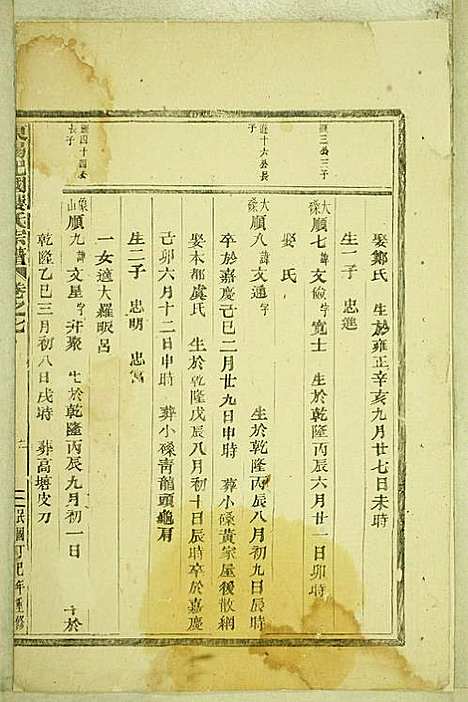 娶鄭氏 生於雍正辛亥九月廿七日未時
生一子 忠進
三公三子
大 順七 諱文儉 字寬士 生於乾隆丙辰六月廿一日卯時
娶氏
十六公長子
大 順八 諱文通 字 生於乾隆丙辰八月初九日辰時
卒於嘉慶己巳二月廿九日申時 葬小磉黃家屋後散網
娶本都虞氏 生於乾隆戊辰八月初十日辰時卒於嘉慶
己卯六月十二日申時 葬小磉靑龍頭龜肩
生二子 忠明 忠
一女適大羅畈呂
四十四公長子
山 順九 諱文星 字升聚 生於乾隆丙辰九月初一日 卒於
乾隆乙巳三月初八日戌時 葬高塘皮刀
東陽杞國樓氏宗譜 卷之七
民國丁巳年重修